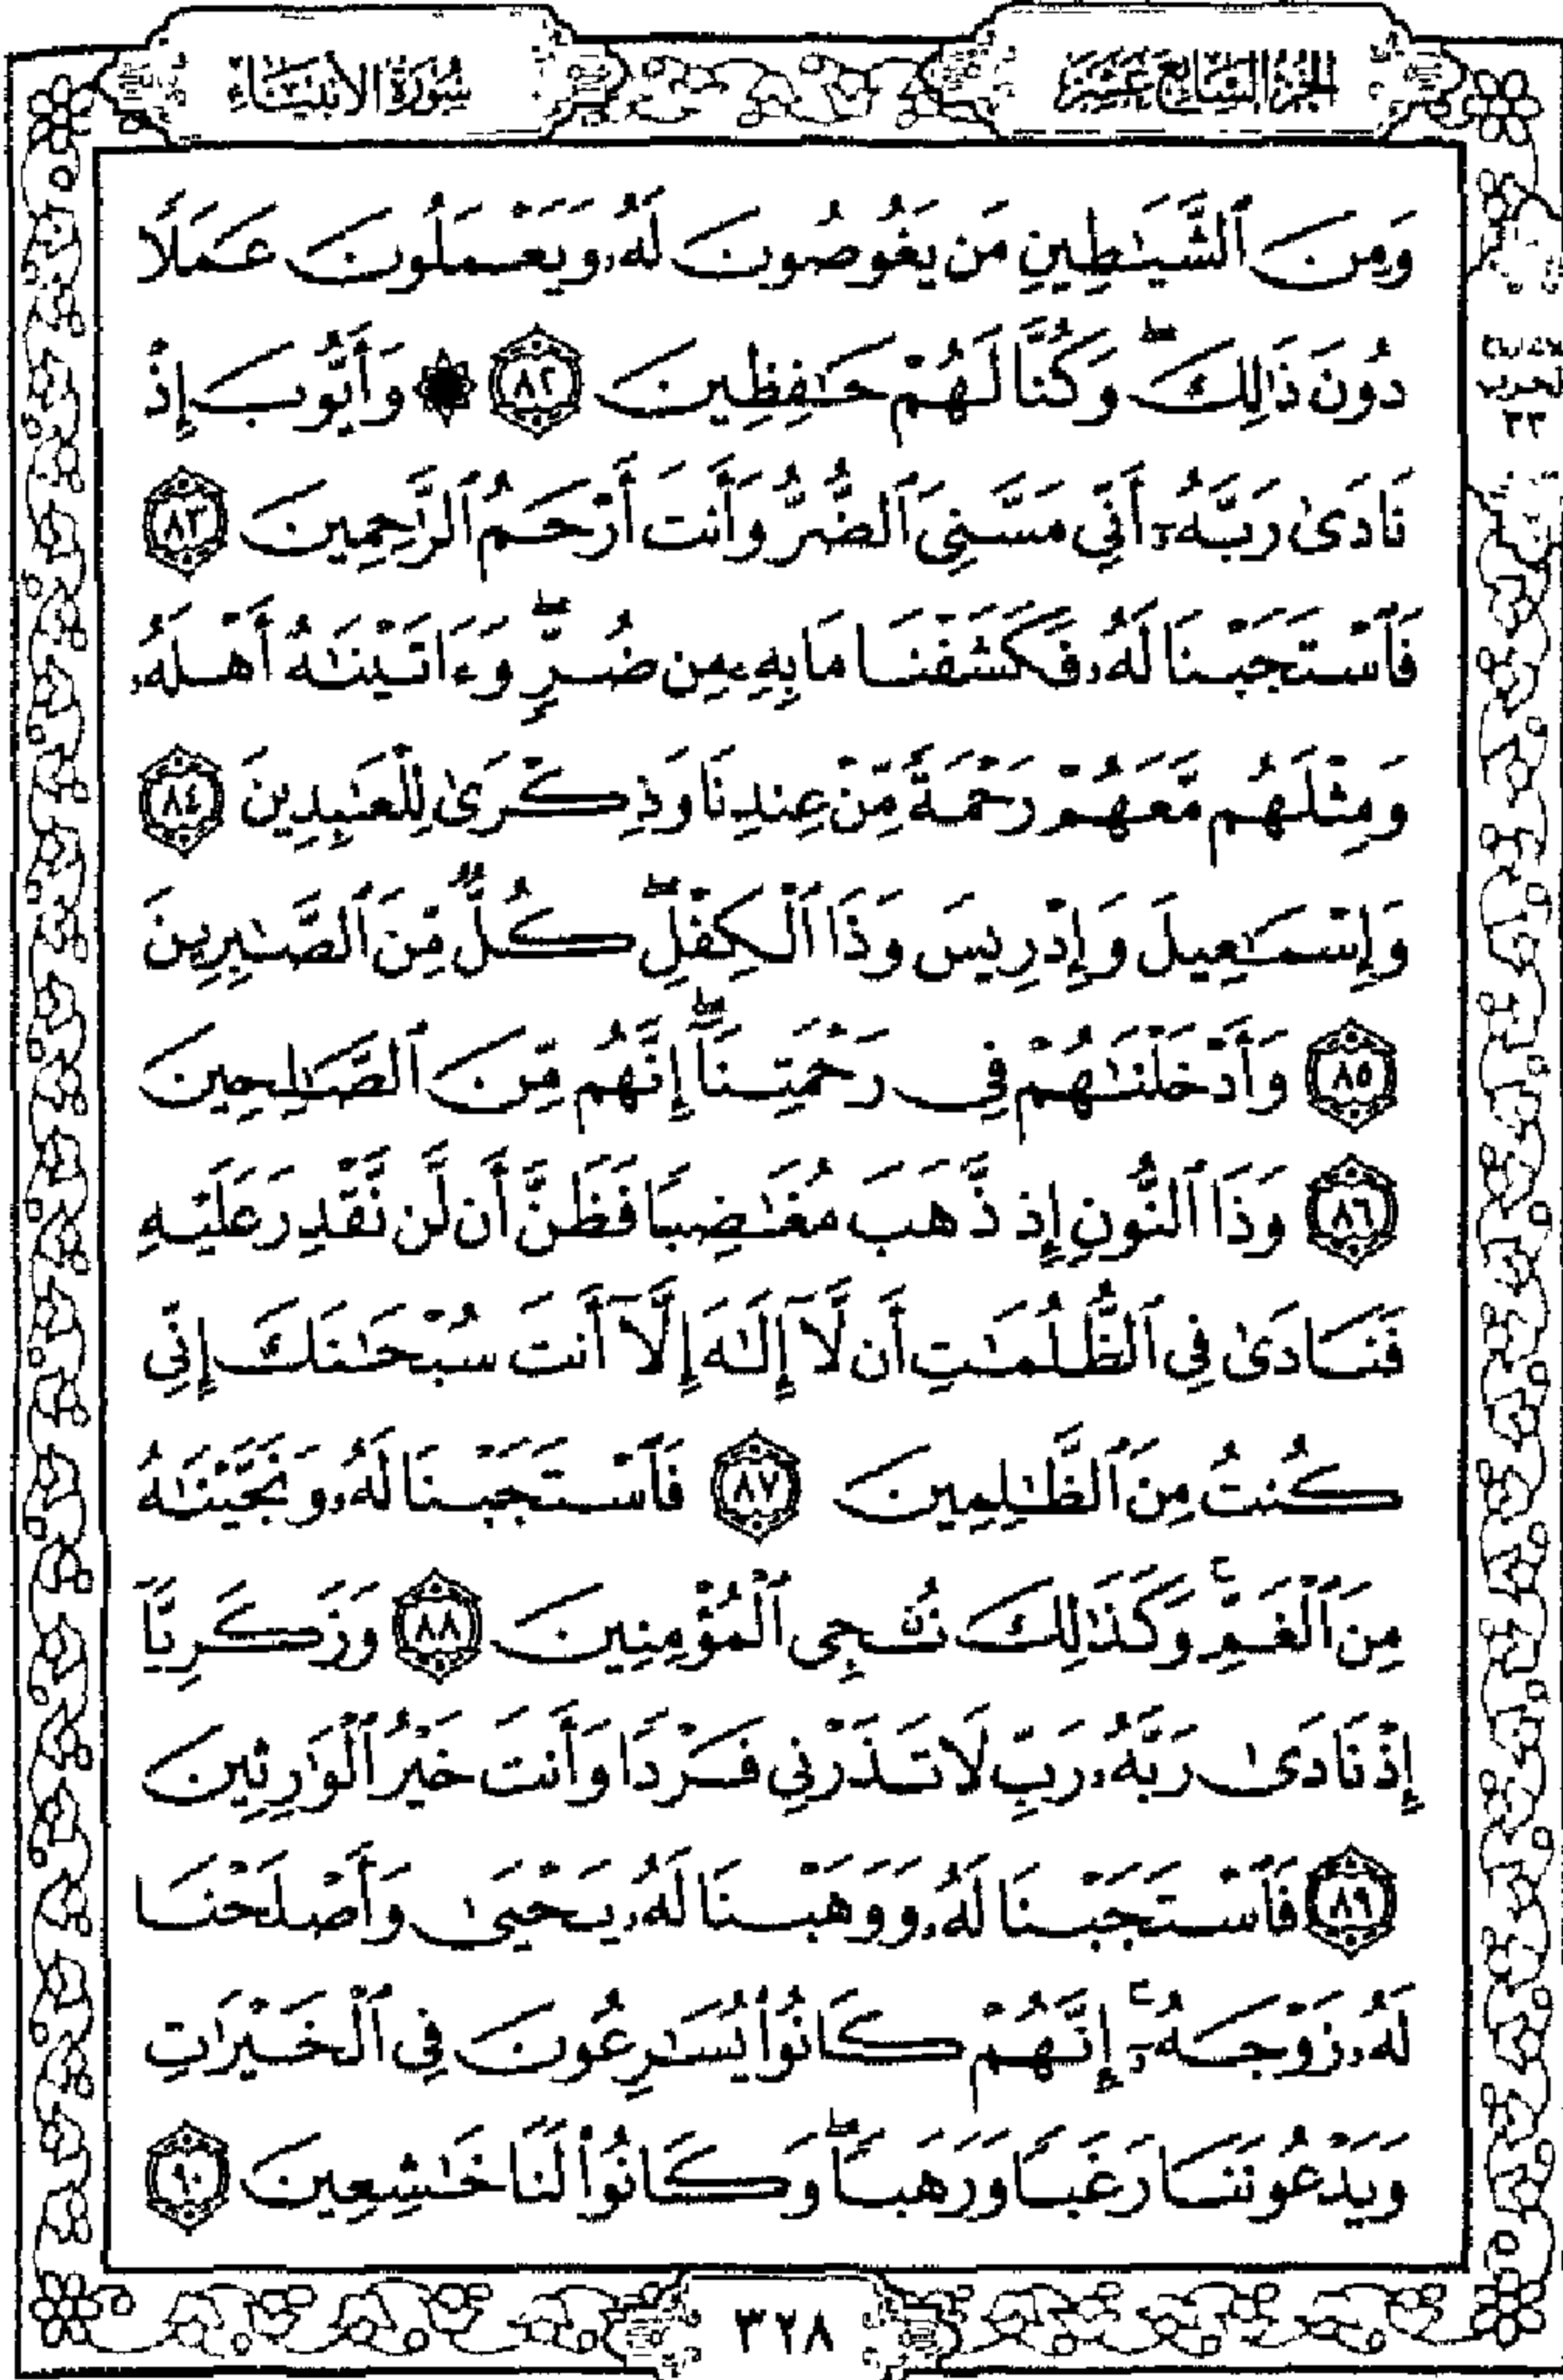 الجزء السابع عشر
سورة الأنبياء
وَمِنَ ٱلشَّيَٰطِينِ مَن يَغُوصُونَ لَهُۥ وَيَعْمَلُونَ عَمَلًا
دُونَ ذَٰلِكَ ۖ وَكُنَّا لَهُمْ حَٰفِظِينَ ٨٢ ۞ وَأَيُّوبَ إِذْ
نَادَىٰ رَبَّهُۥٓ أَنِّي مَسَّنِيَ ٱلضُّرُّ وَأَنتَ أَرْحَمُ ٱلرَّٰحِمِينَ ٨٣
فَٱسْتَجَبْنَا لَهُۥ فَكَشَفْنَا مَا بِهِۦ مِن ضُرٍّ ۖ وَءَاتَيْنَٰهُ أَهْلَهُۥ
وَمِثْلَهُم مَّعَهُمْ رَحْمَةً مِّنْ عِندِنَا وَذِكْرَىٰ لِلْعَٰبِدِينَ ٨٤
وَإِسْمَٰعِيلَ وَإِدْرِيسَ وَذَا ٱلْكِفْلِ ۖ كُلٌّ مِّنَ ٱلصَّٰبِرِينَ
٨٥ وَأَدْخَلْنَٰهُمْ فِي رَحْمَتِنَآ ۖ إِنَّهُم مِّنَ ٱلصَّٰلِحِينَ
٨٦ وَذَا ٱلنُّونِ إِذ ذَّهَبَ مُغَٰضِبًا فَظَنَّ أَن لَّن نَّقْدِرَ عَلَيْهِ
فَنَادَىٰ فِي ٱلظُّلُمَٰتِ أَن لَّآ إِلَٰهَ إِلَّآ أَنتَ سُبْحَٰنَكَ إِنِّي
كُنتُ مِنَ ٱلظَّٰلِمِينَ ٨٧ فَٱسْتَجَبْنَا لَهُۥ وَنَجَّيْنَٰهُ
مِنَ ٱلْغَمِّ ۚ وَكَذَٰلِكَ نُۨجِي ٱلْمُؤْمِنِينَ ٨٨ وَزَكَرِيَّآ
إِذْ نَادَىٰ رَبَّهُۥ رَبِّ لَا تَذَرْنِي فَرْدًا وَأَنتَ خَيْرُ ٱلْوَٰرِثِينَ
٨٩ فَٱسْتَجَبْنَا لَهُۥ وَوَهَبْنَا لَهُۥ يَحْيَىٰ وَأَصْلَحْنَا
لَهُۥ زَوْجَهُۥٓ ۚ إِنَّهُمْ كَانُوا۟ يُسَٰرِعُونَ فِي ٱلْخَيْرَٰتِ
وَيَدْعُونَنَا رَغَبًا وَرَهَبًا ۖ وَكَانُوا۟ لَنَا خَٰشِعِينَ ٩٠
الحزب
٣٣
٣٢٨